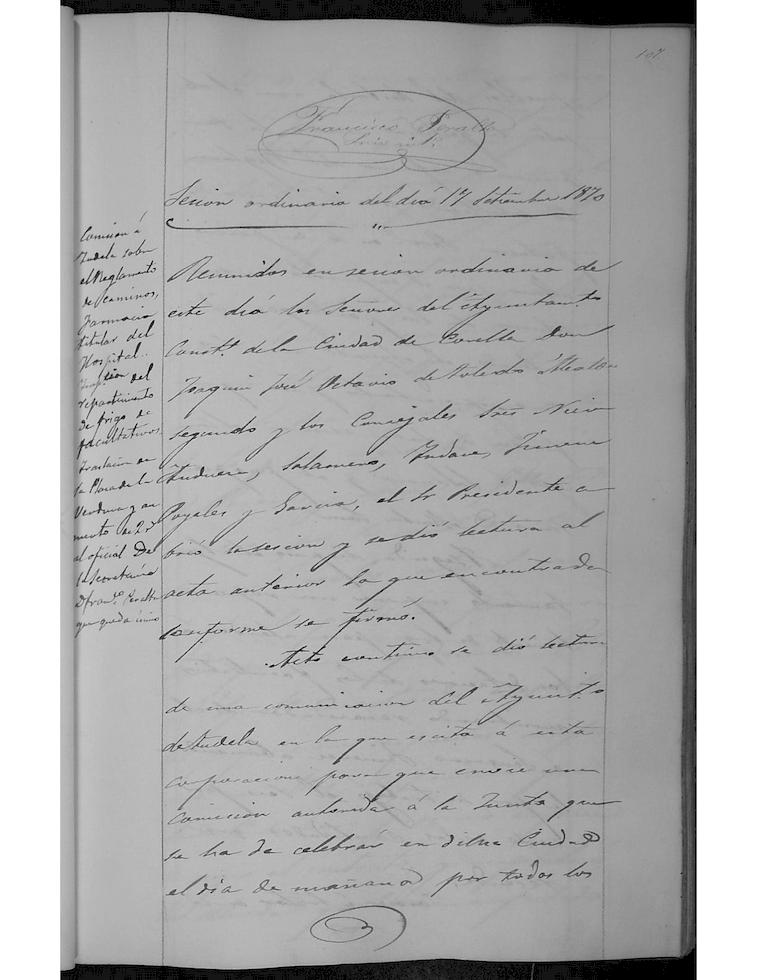 107.
Francisco Peralta
Srio
Sesion ordinaria del dia 17 Setiembre 1870
Comision á
Tudela sobre
el Reglamento
de caminos,
Farmacia
titular del
Hospital.
del
repartimiento
de trigo de
facultativos.
Traslacion de
la Plaza de la
Verdura y au
mento de 2 rs
al oficial De
la Secretaria
D. Franco. Peralta
que queda
Reunidos en sesion ordinaria de
este dia los Señores del Ayuntamto
Constl. de la Ciudad de Corella Don
Joaquin José Octavio de Toledo Alcalde
segundo y los Concejales Sres
Salamero, Jimenez
Poyales y Garcia, el Sr Presidente a
brió la sesion y se dió lectura al
acta anterior la que encontrada
conforme se firmó.
Acto continuo se dió lectura
de una comunicacion del Ayuntto
de Tudela en la que escita á esta
corporacion para que envie una
comision autorida á la Junta que
se ha de celebrár en dicha Ciudad
el dia de mañana por todos los